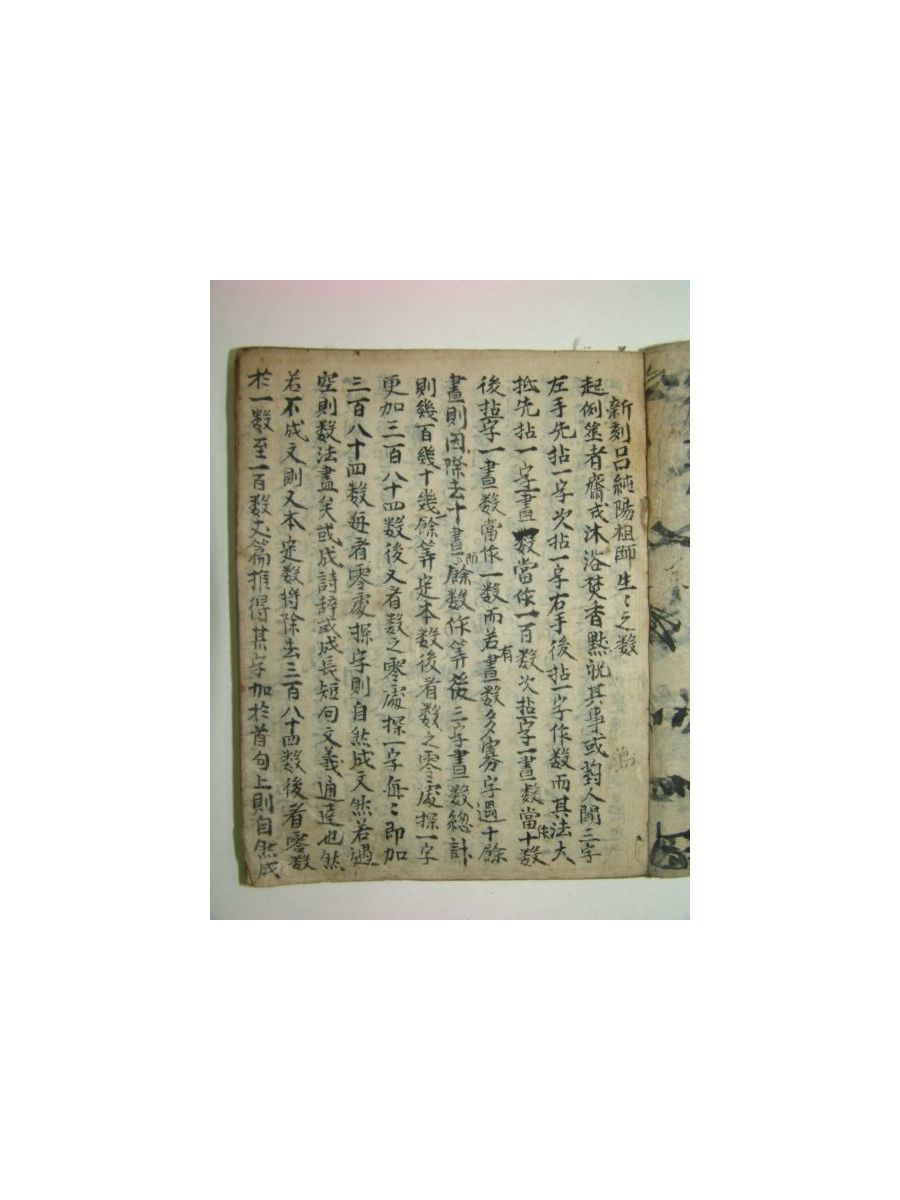 新刻呂純陽祖師生〻之数
起例筮者齋戒沐浴焚香黙祝其事或對人開三字
左手先拈一字次拈一字右手後拈一字作数而其法大
抵先拈一字畫数當作一百数次拈字一畫数當十数
後拈字一畫数當作一数而若有畫数多寡字過十餘
畫則因除去十畫而餘数作等後三字畫数總計
則幾百幾十幾餘等定本数後看数之零處探一字
更加三百八十四数後又看数之零處探一字每〻即加
三百八十四数每看零處探字則自然成文然若遇
空則数法盡矣或成詩辭或成長短句文義通達也然
若不成文則又本定数將除去三百八十四数後看零数
於一数至一百数丈篇推得其字加於首句上則自然成